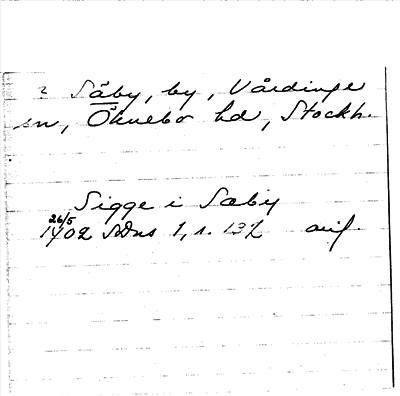 2 Säby, by, Vårdinge
sn, Öknebo hd, Stockh.
Sigge i Sæby
26/5
1402 SDns 1, s. 132 avf.